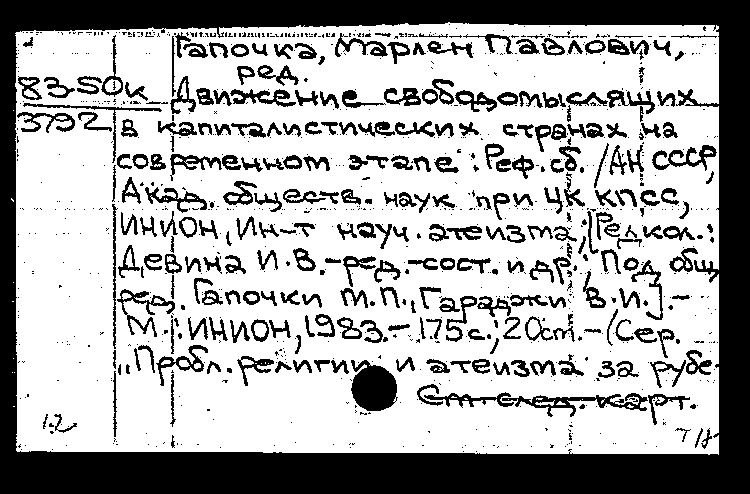 Гапочка, Марлен Павлович,
ред.
83-50к
Движение свободомыслящих
3792
в капиталистических странах на
современном этапе : Реф. сб. / АН СССР,
Акад. обществ. наук при ЦК КПСС,
ИНИОН, Ин-т науч. атеизма; [Редкол.:
Девина И.В. - ред.-сост. и др.; Под общ.
ред. Гапочки М.П., Гараджи В.И.]. -
М.: ИНИОН, 1983. - 175 с.; 20 см. - (Сер.
"Пробл. религии и атеизма за рубе-
См. след. карт.
12